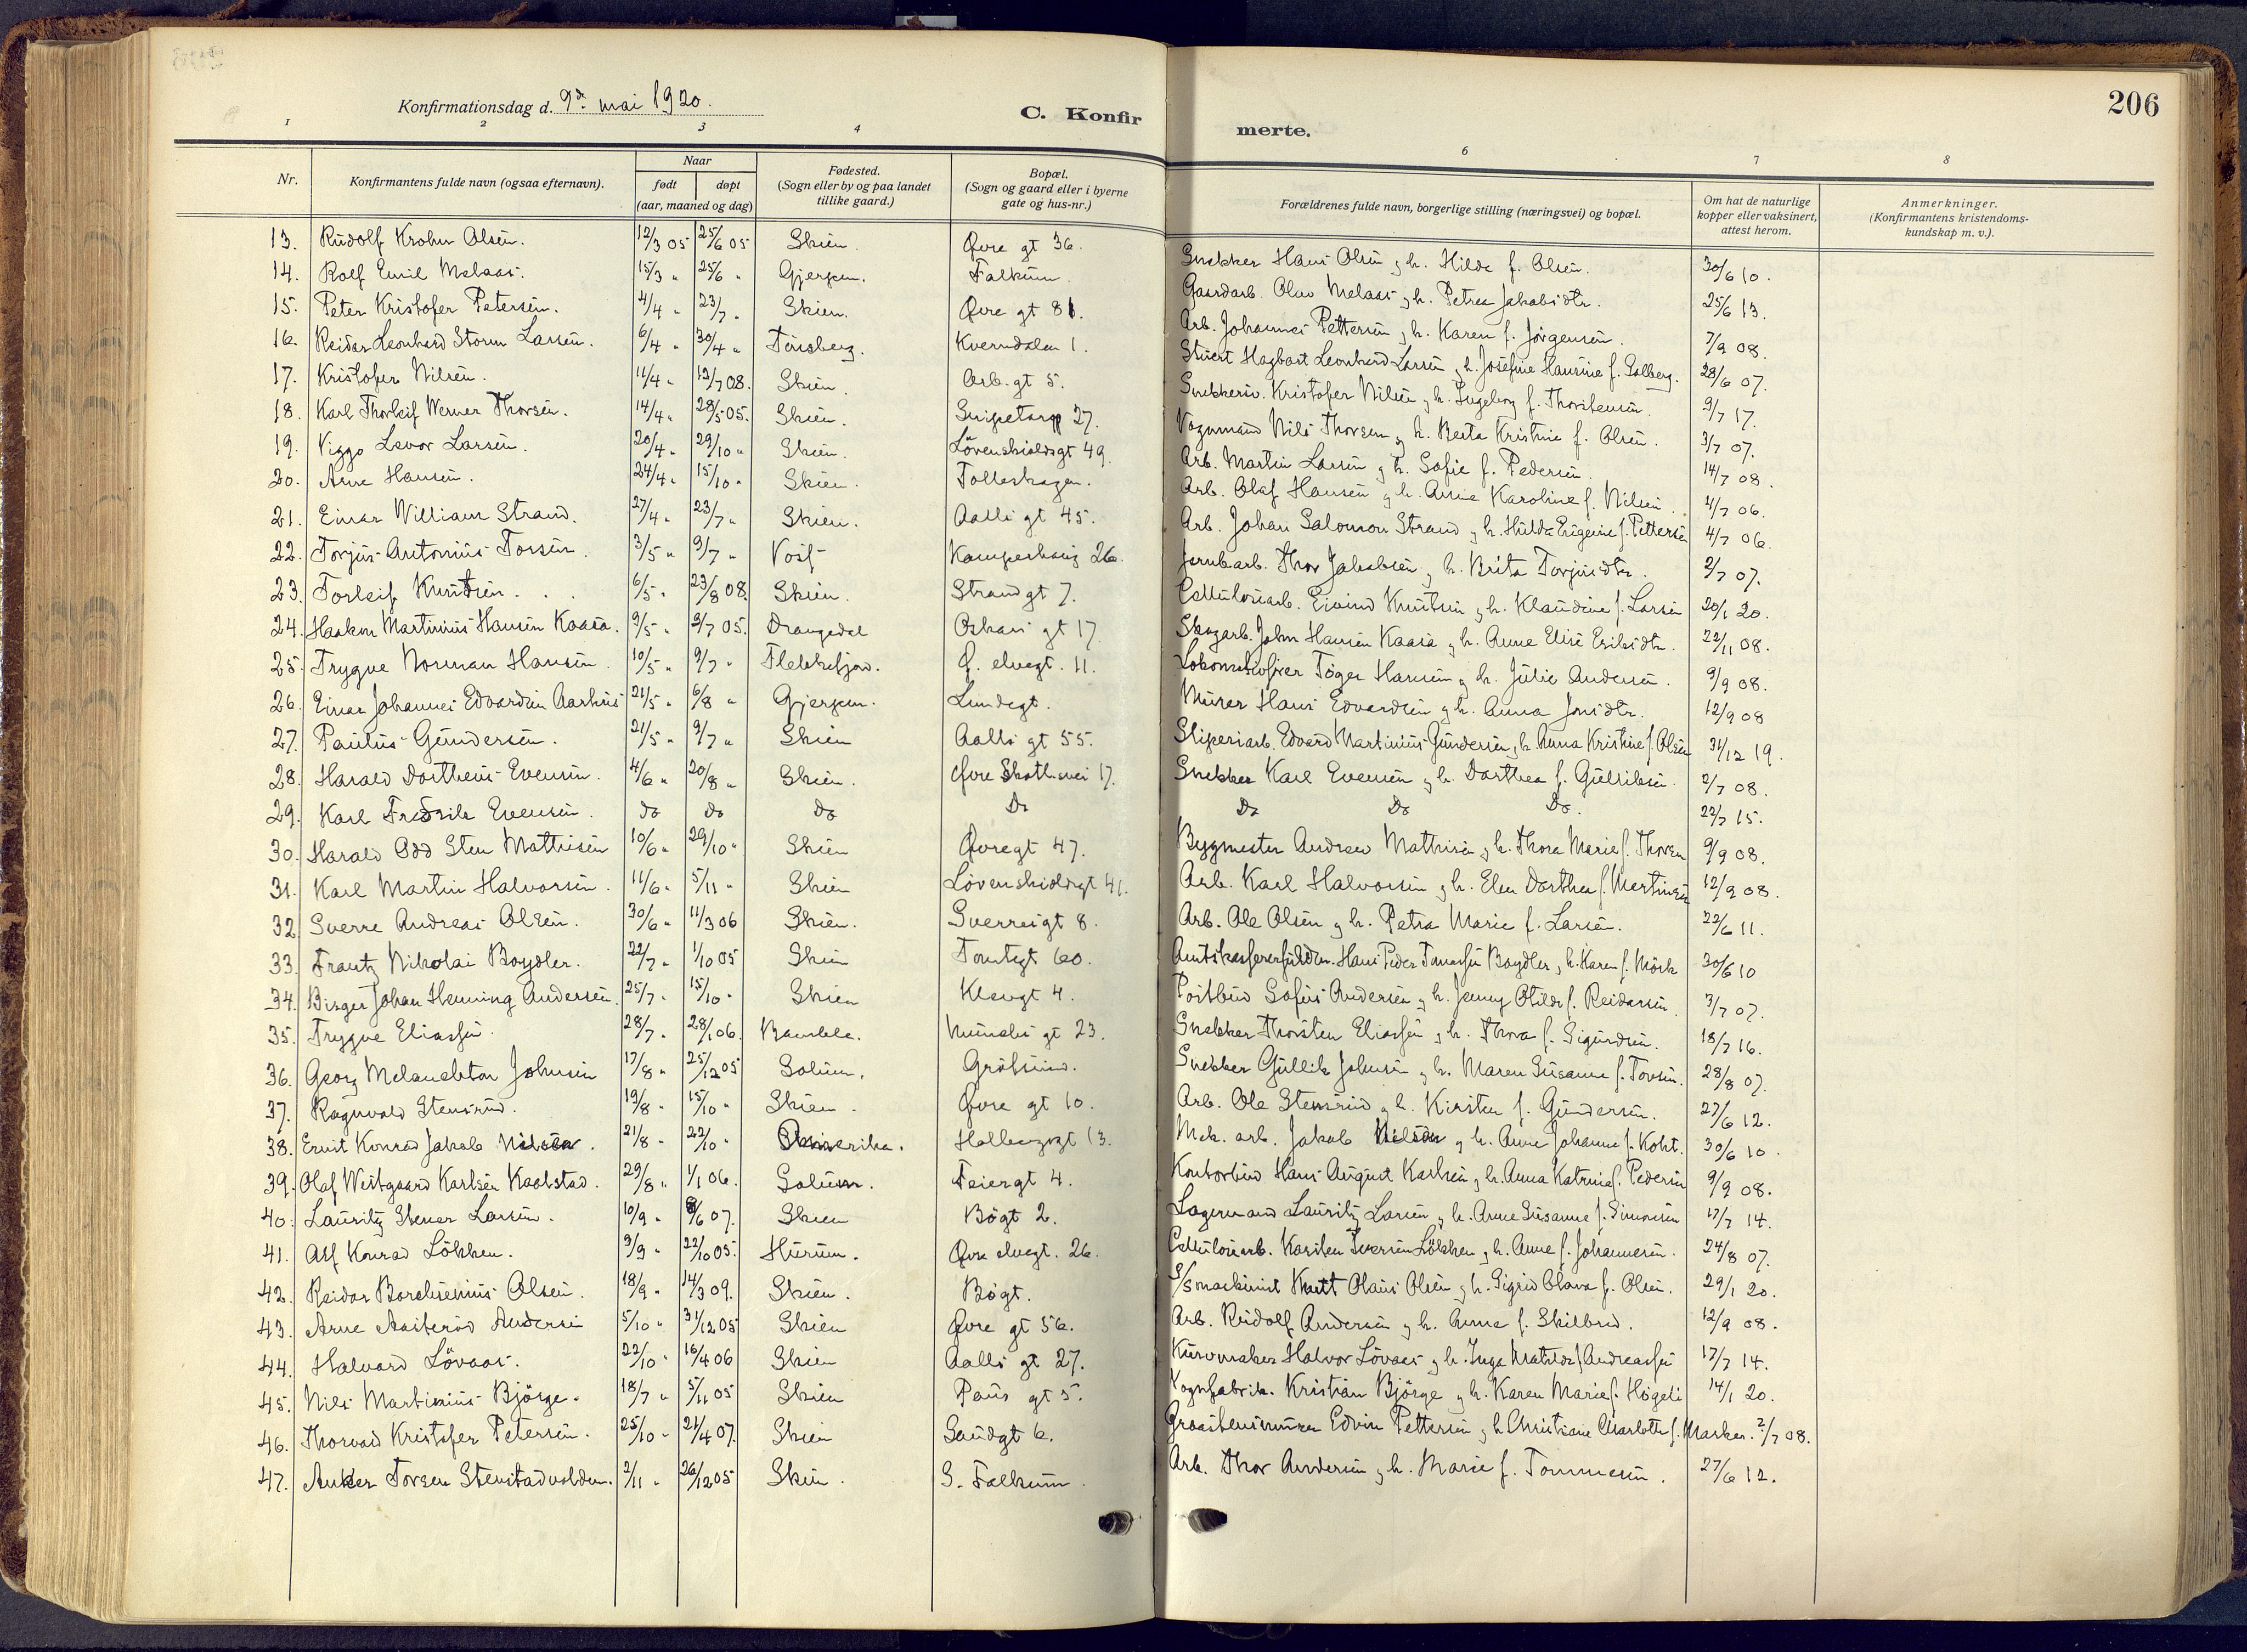 206
Konfirmationsdag d. 9de mai 1920.
C. Konfirmerte.
1 2 3 4 6 7 8
Nr. Konfirmantens fulde navn (ogsaa efternavn). Naar født døpt (aar, maaned og dag) Fødested. (Sogn eller by og paa landet tillike gaard.) Bopæl. (Sogn og gaard eller i byerne gate og hus-nr.) Forældrenes fulde navn, borgerlige stilling (næringsvei) og bopæl. Om hat de naturlige kopper eller vaksinert, attest herom. Anmerkninger. (Konfirmantens kristendomskundskap m. v.).
13. Rudolf Krohn Olsen. 12/3 05 25/6 05 Skien. Øvre gt 36. Snekker Hans Olsen og h. Hilda f. Olsen. 30/6 10.
14. Rolf Emil Melaas. 15/3 " 25/6 " Gjerpen. Falkum. Gaardarb. Olav Melaas og h. Petrea Jakobsdtr. 25/6 13.
15. Peter Kristofer Petersen. 4/4 " 23/7 " Skien. Øvre gt 81. Arb. Johannes Pettersen og h. Karen f. Jørgensen. 7/9 08.
16. Reidar Leonhard Storm Larsen. 6/4 " 30/4 " Tønsberg. Kverndalen 1. Stuert Hagbart Leonhard Larsen og h. Josefine Hansine f. Solberg. 28/6 07.
17. Kristofer Nilsen. 11/4 " 19/7 08. Skien. Arb. gt 5. Snekkersv. Kristofer Nilsen og h. Ingeborg f. Thorstensen. 9/7 17.
18. Karl Thorleif Werner Thorsen. 14/4 " 28/5 05. Skien. Snipetorp 27. Vognmand Nils Thorsen og h. Berta Kristine f. Olsen. 3/7 07.
19. Viggo Levor Larsen. 20/4 " 29/10 " Skien. Lövenskioldsgt 49. Arb. Martin Larsen og h. Sofie f. Pedersen. 14/7 08.
20. Arne Hansen. 24/4 " 15/10 " Skien. Follestragen. Arb. Olaf Hansen og h. Anna Karoline f. Nilsen. 4/7 06.
21. Einar William Strand. 27/4 " 23/7 " Skien. Aalls gt 45. Arb. Johan Salomon Strand og h. Hulda Eugenie f. Pettersen 4/7 06.
22. Torjus Antonius Torsen. 3/5 " 9/7 " Voss Kamperhaug 26. Jernbarb. Thor Jakobsen og h. Brita Torjusdtr. 2/7 07.
23. Torleif Knutsen. 6/5 " 23/8 08. Skien. Strandgt 7. Cellulosearb. Eivind Knutsen og h. Klaudine f. Larsen 20/1 20.
24. Haakon Martinius Hansen Kaasa. 9/5 " 9/7 05. Drangedal Oskars gt 17. Skogarb. John Hansen Kaasa og h. Anne Elise Eriksdtr. 22/11 08.
25. Trygve Norman Hansen. 10/5 " 9/7 " Flekkefjord. Ø. elvegt. 11. Lokomotivfører Töger Hansen og h. Julie Andersen. 9/9 08.
26. Einar Johannes Edvardsen Aarhus 21/5 " 6/8 " Gjerpen. Lundegt. Murer Hans Edvardsen og h. Anna Jonsdtr. 12/9 08
27. Paulus Gundersen. 21/5 " 9/7 " Skien Aalls gt 55. Sliperiarb. Edvard Martinius Gundersen og h. Anna Kristine f. Olsen 31/12 19.
28. Harald Dortheus Evensen. 4/6 " 20/8 " Skien. Øvre Skotlisvei 17. Snekker Karl Evensen og h. Dorthea f. Gulliksen. 2/7 08.
29. Karl Fredrik Evensen. do do Do Do Do Do Do. 22/7 15.
30. Harald Odd Sten Mathisen 10/6 " 29/10 " Skien Øvregt 47. Bygmester Andreas Mathisen og h. Thora Marie f. Thorsen 9/9 08.
31. Karl Martin Halvorsen. 11/6 " 5/11 " Skien Lövenskioldsgt 41. Arb. Karl Halvorsen og h. Elen Dorthea f. Martinsen 12/9 08.
32. Sverre Andreas Olsen. 30/6 " 11/3 06 Skien. Sverresgt 8. Arb. Ole Olsen og h. Petra Marie f. Larsen. 22/6 11.
33. Frantz Nikolai Boydler. 22/7 " 1/10 05 Skien Tomtegt 60. Amtskassererfuldm. Hans Peder Tomassen Boydler og h. Karen f. Mörk 30/6 10
34. Birger Johan Henning Andersen. 25/7 " 15/10 " Skien Klevgt 4. Postbud Sofus Andersen og h. Jenny Otilde f. Reidarsen. 3/7 07.
35. Trygve Eliassen. 28/7 " 28/1 06. Bamble. Munchs gt 23. Snekker Thorsten Eliassen og h. Thora f. Sigurdsen. 18/7 16.
36. Georg Melanchton Johnsen 17/8 " 25/12 05 Solum. Gråtsund. Snekker Gullik Johnsen og h. Maren Susanne f. Tovsen. 28/8 07.
37. Ragnvald Stensrud. 19/8 " 15/10 " Skien. Øvre gt 10. Arb. Ole Stensrud og h. Kirsten f. Gundersen. 27/6 12.
38. Ernst Konrad Jakob Nilsen. 21/8 " 22/10 " Amerika. Holbergsgt 13. Mek. arb. Jakob Nilsen og h. Anne Johanne f. Koht. 30/6 10.
39. Olaf Westgaard Karlsen Kaalstad. 29/8 " 1/1 06. Solum. Feiergt 4. Kontorbud Hans August Karlsen og h. Anna Katrine f. Pedersen 9/9 08.
40. Lauritz Stener Larsen. 10/9 " 8/6 07. Skien Bögt 2. Lagermand Lauritz Larsen og h. Anne Susanne f. Simonsen 17/7 14.
41. Alf Konrad Lökken. 9/9 " 22/10 05. Hurum. Øvre elvegt. 26. Cellulosearb. Karsten Iversen Lökken og h. Anne f. Johannesen. 24/8 07.
42. Reidar Borchsenius Olsen. 18/9 " 14/3 09. Skien. Bögt. S/S maskinist Knutt Olaus Olsen og h. Sigrid Olava f. Olsen. 29/1 20.
43. Arne Aasteröd Andersen 5/10 " 31/12 05 Skien Øvre gt 56. Arb. Rudolf Andersen og h. Anna f. Skilbred. 12/9 08.
44. Halvard Lövaas. 22/10 " 16/4 06 Skien Aalls gt 27. Kurvmaker Halvor Lövaas og h. Inga Matilde f. Andreassen 17/7 14.
45. Nils Martinius Björge. 18/7 " 5/11 05 Skien Paus gt 5. Vognfabrik. Kristian Björge og h. Karen Marie f. Högeli 14/1 20.
46. Thorvald Kristofer Petersen. 25/10 " 21/4 07. Skien Sandgt 6. Graastensmurer Edvin Pettersen og h. Christiane Charlotte f. Marker. 2/7 08.
47. Anker Torsen Stenstadvolden. 2/11 " 26/12 05 Skien. S. Falkum. Arb. Thor Andersen og h. Marie f. Tommesen. 27/6 12.